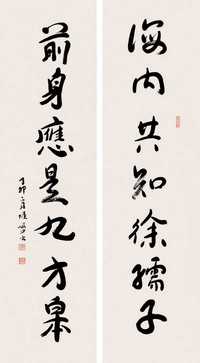 海内共知徐孺子
前身應是九方皋
丁卯